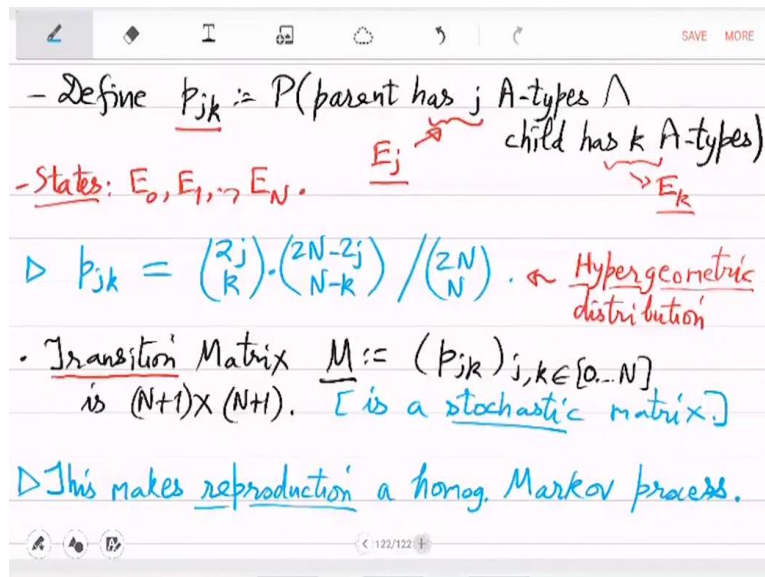 SAVE MORE
- Define pjk := P(parent has j A-types ∧
child has k A-types)
Ej
Ek
- States: E0, E1, .., EN.
▷ pjk = (2j k)·(2N-2j N-k) / (2N N). ← Hypergeometric
distribution
· Transition Matrix M := (pjk) j,k∈[0...N]
is (N+1)×(N+1). [is a stochastic matrix.]
▷ This makes reproduction a homog. Markov process.
< 122/122 +